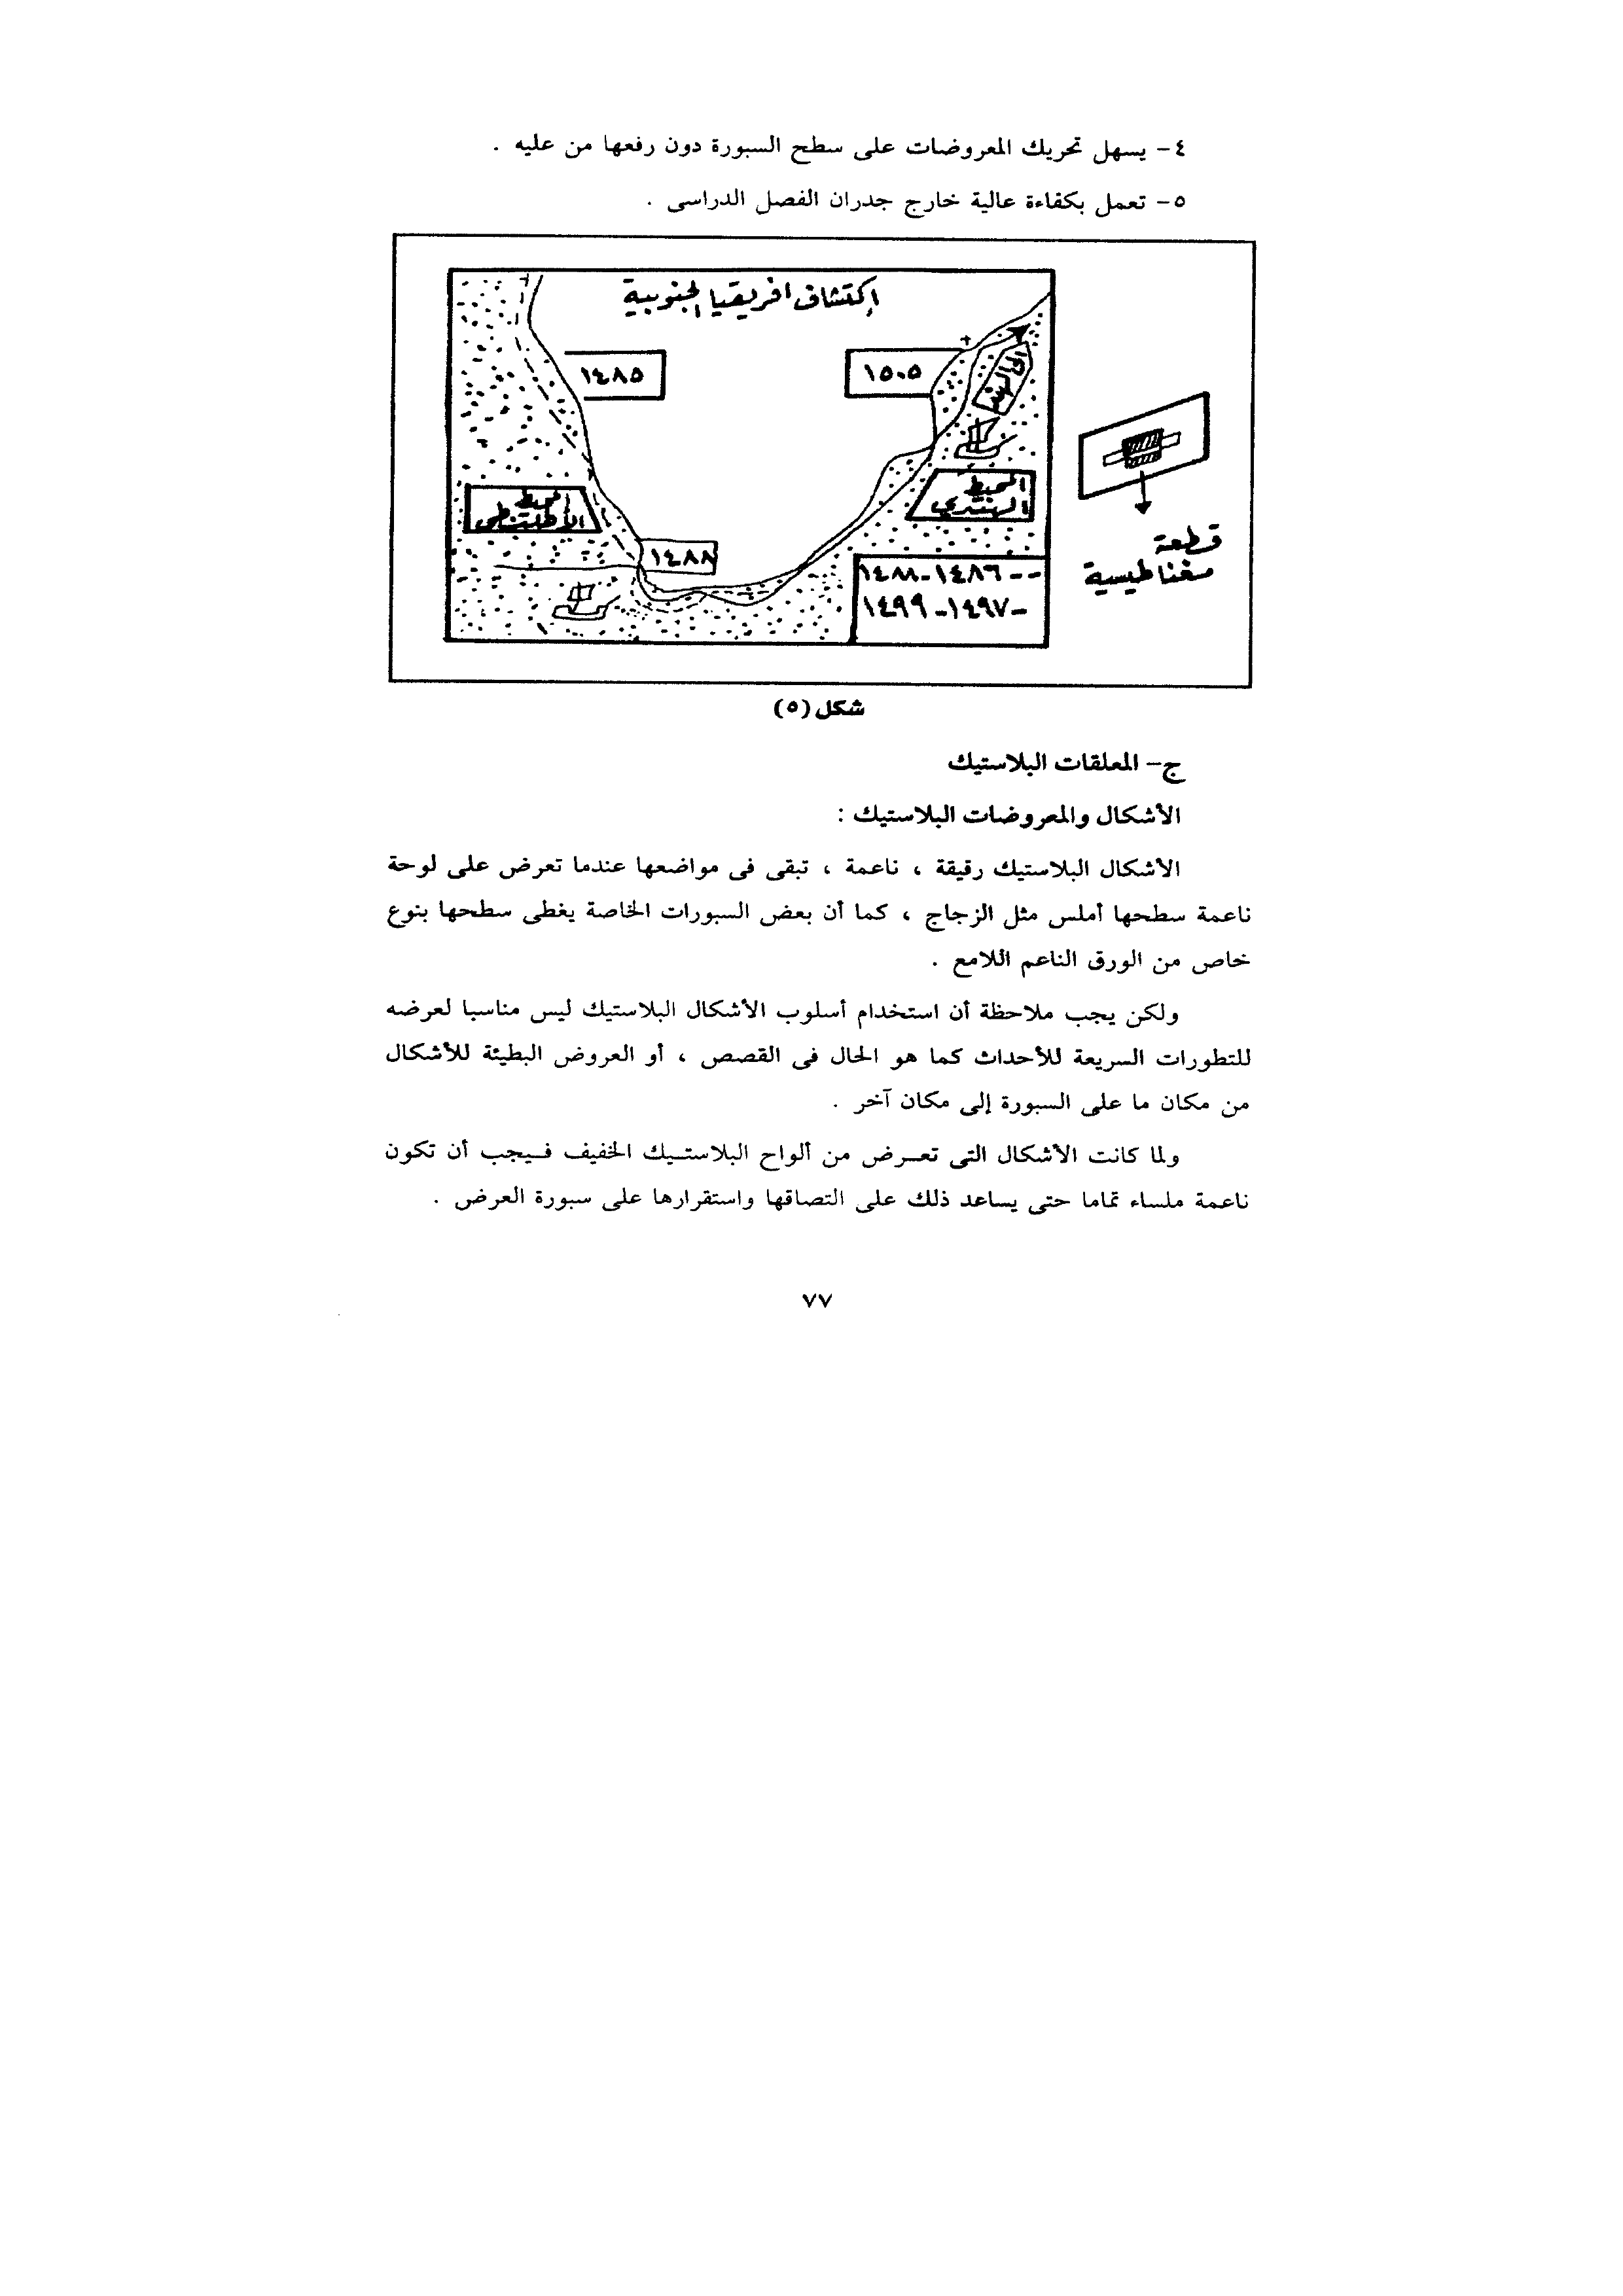 ٤- يسهل تحريك المعروضات على سطح السبورة دون رفعها من عليه .
٥- تعمل بكفاءة عالية خارج جدران الفصل الدراسى .
إكتشاف افريقيا الجنوبية
١٤٨٥
١٥٠٥
الى الهند
المحيط
الهندي
المحيط
الأطلنطى
١٤٨٨
١٤٨٦-١٤٨٨ --
١٤٩٧-١٤٩٩ -
قطعة
مغناطيسية
شكل (٥)
ج- المعلقات البلاستيك
الأشكال والمعروضات البلاستيك :
الأشكال البلاستيك رقيقة ، ناعمة ، تبقى فى مواضعها عندما تعرض على لوحة
ناعمة سطحها أملس مثل الزجاج ، كما أن بعض السبورات الخاصة يغطى سطحها بنوع
خاص من الورق الناعم اللامع .
ولكن يجب ملاحظة أن استخدام أسلوب الأشكال البلاستيك ليس مناسبا لعرضه
للتطورات السريعة للأحداث كما هو الحال فى القصص ، أو العروض البطيئة للأشكال
من مكان ما على السبورة إلى مكان آخر .
ولما كانت الأشكال التى تعـرض من ألواح البلاستـيك الخفيف فـيجب أن تكون
ناعمة ملساء تماما حتى يساعد ذلك على التصاقها واستقرارها على سبورة العرض .
٧٧